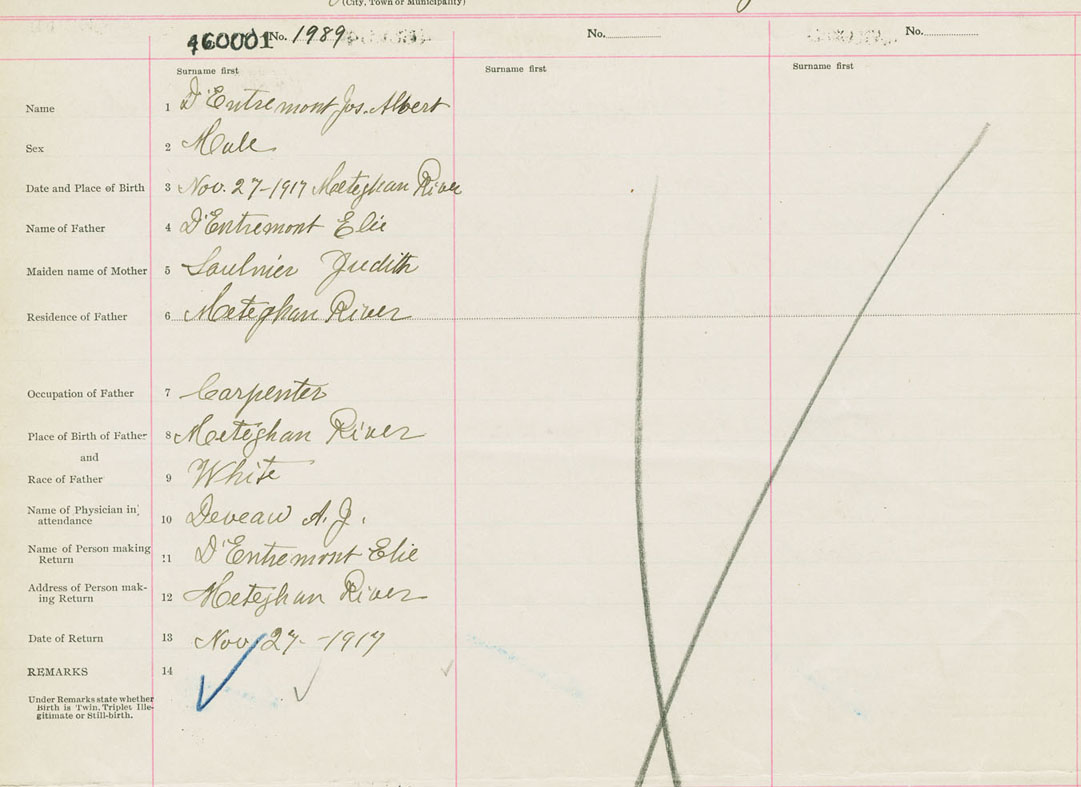 (City, Town or Municipality)
460001 No. 1989 No. No.
Surname first Surname first Surname first
Name 1 D'Entremont Jos. Albert
Sex 2 Male
Date and Place of Birth 3 Nov. 27-1917 Meteghan River
Name of Father 4 D'Entremont Elie
Maiden name of Mother 5 Saulnier Judith
Residence of Father 6 Meteghan River
Occupation of Father 7 Carpenter
Place of Birth of Father 8 Meteghan River
and
Race of Father 9 White
Name of Physician in
attendance 10 Deveau A. J.
Name of Person making
Return 11 D'Entremont Elie
Address of Person mak-
ing Return 12 Meteghan River
Date of Return 13 Nov 27 - 1917
REMARKS 14
Under Remarks state whether
Birth is Twin, Triplet, Ille-
gitimate or Still-birth.